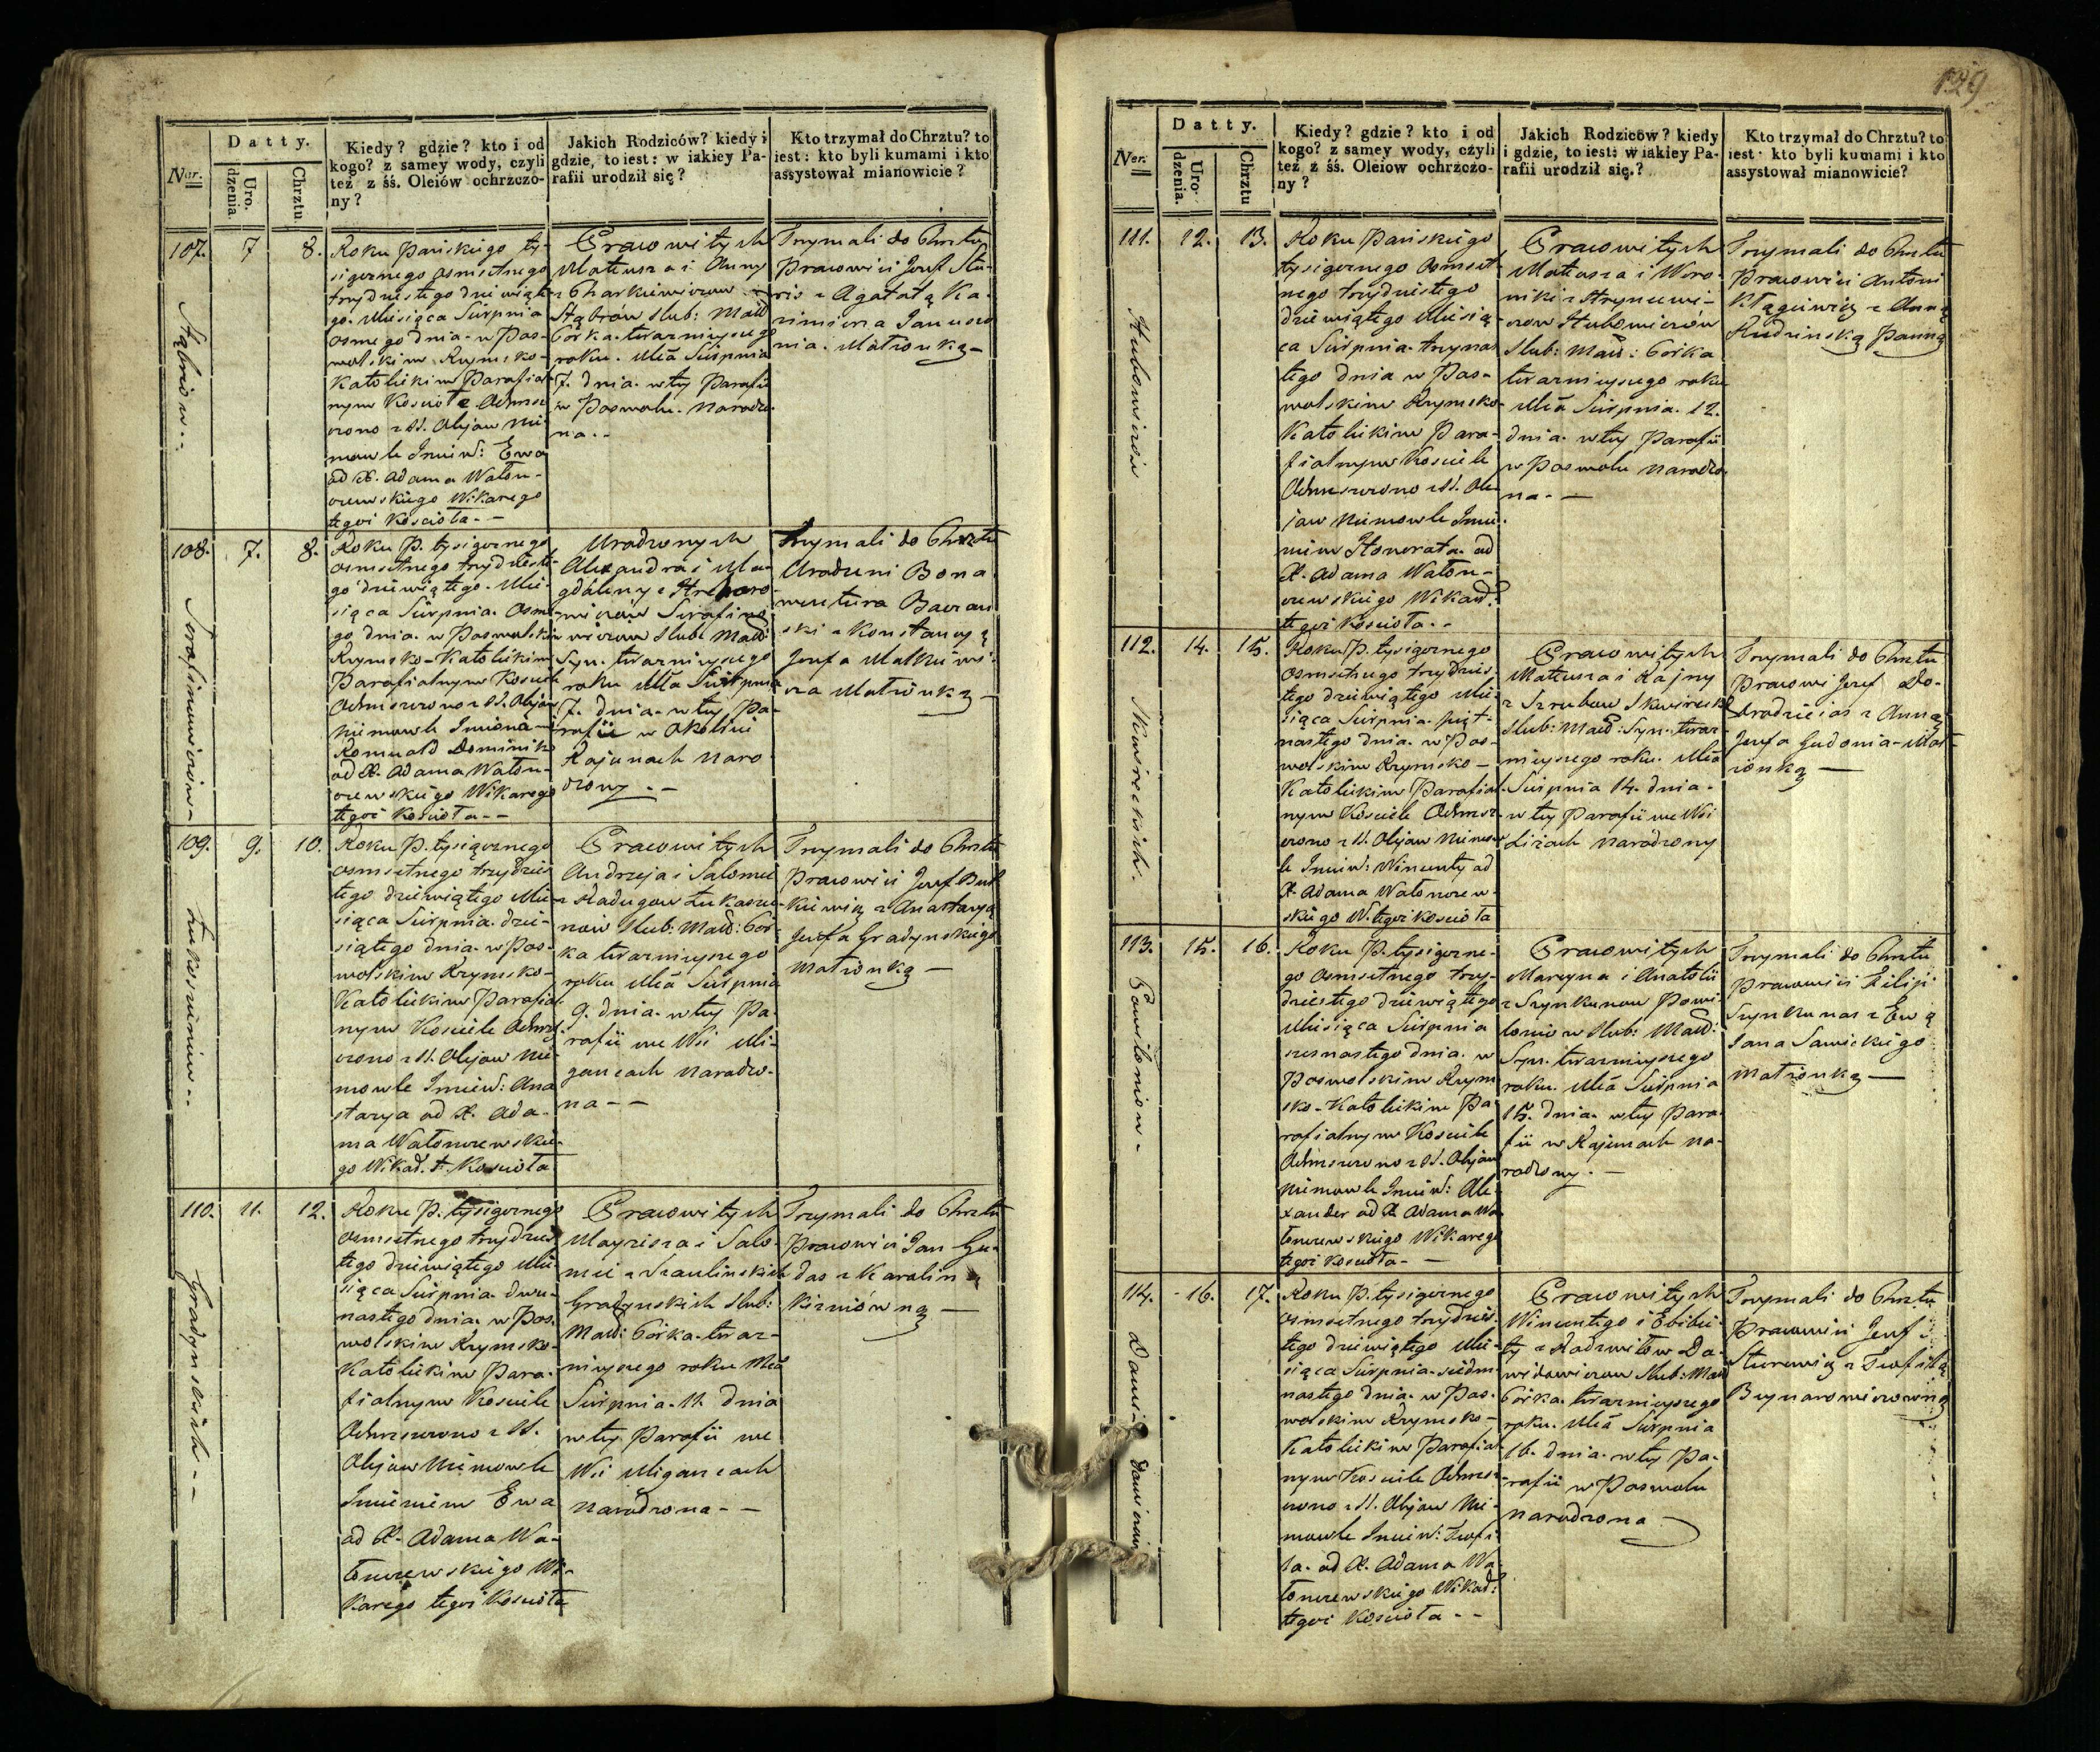 Nar.
Datty.
Uro-
dzenia.
Chrztu
Kiedy? gdzie? kto i od
kogo? z samey wody, czyli
też z śś. Oleiów ochrzczo-
ny?
Jakich Rodziców? kiedy i
gdzie, to iest: w iakiey Pa-
rafii urodził się?
Kto trzymał do Chrztu? to
iest: kto byli kumami i kto
assystował mianowicie?
107.
7
8.
Roku Pańskiego ty-
siącznego osmsetnego
trzydziestego dziewiąte-
go. Miesiąca Sierpnia
osmego dnia. w Pos-
wolskim Rzymsko-
Katolickim Parafial-
nym Kosciele Ochrzc-
zono z SS. Olejow Nie-
mowle Imien: Ewa
od X. Adama Waton-
czewskiego Wikarego
tegoż Kościoła. -
Pracowitych
Mateusza i Anny
z Charkiewiczow
Stąbrów Slub: Mał:
Córka. teraznieyszego
roku. Mca Sierpnia
7. dnia. w tey Parafii
w Poswolu. Narodzo-
na. -
Trzymali do Chrztu
Pracowici Jozef Stu-
ris z Agatą Ka-
zimierza Janusza
nia. Małżonką -
108.
7.
8.
Roku P. tysiącznego
osmsetnego trzydzieste-
go dziewiątego. Mie-
siąca Sierpnia. Osme-
go dnia. w Poswolskim
Rzymsko-Katolickim
Parafialnym Kosciele
Ochrzczono z SS. Olejow
Niemowle Imiona-mi
Romuald Dominik
od X. Adama Waton-
czewskiego Wikarego
tegoż Kościoła. -
Urodzonych
Alexandra i Ma-
gdaleny z
Serafino-
wiczow Slub: Mał:
Syn. teraznieyszego
roku Mca Sierpnia
7. dnia. w tey Pa-
rafii w Okolicy
Rajunach Naro-
dzony. -
Trzymali do Chrztu
Urodzeni Bona-
wentura
ski z Konstancyą
Jozefa Malkiewi-
cza Małżonką -
109.
9.
10.
Roku P. tysiącznego
osmsetnego trzydzies-
tego dziewiątego Mie-
siąca Sierpnia. dzie-
siątego dnia. w Pos-
wolskim Rzymsko-
Katolickim Parafial-
nym Kosciele Ochrz-
czono z SS. Olejow Nie-
mowle Imien: Ana-
stazya od X. Ada-
ma Watonczewskie-
go Wikar. t. Kościoła
Pracowitych
Andrzeja i Salomei
z Radugow Łukaszu-
now Slub: Mał: Cór-
ka teraznieyszego
roku Mca Sierpnia
9. dnia. w tey Pa-
rafii we Wsi Mi-
gancach Narodzo-
na - -
Trzymali do Chrztu
Pracowici Jozef But-
kiewicz z Anastazyą
Jozefa Gradzynskiego
Małżonką -
110.
11.
12.
Roku P. tysiącznego
osmsetnego trzydzies-
tego dziewiątego Mie-
siąca Sierpnia. dwu-
nastego dnia. w Pos-
wolskim Rzymsko-
Katolickim Para-
fialnym Kosciele
Ochrzczono z SS.
Olejow Niemowle
Imieniem Ewa
od X. Adama Wa-
tonczewskiego Wi-
karego tegoż Kościoła
Pracowitych
Mayrisza i Salo-
mei z Szaulinskich
Gradzynskich Slub:
Mał: Córka. teraz-
nieyszego roku Mca
Sierpnia. 11. dnia
w tey Parafii we
Wsi Migancach
Narodzona - -
Trzymali do Chrztu
Pracowici Jan Gu-
das z Karolin
Kizniówną -
129
Nar.
Datty.
Uro-
dzenia.
Chrztu
Kiedy? gdzie? kto i od
kogo? z samey wody, czyli
też z śś. Oleiow ochrzczo-
ny?
Jakich Rodziców? kiedy
i gdzie, to iest: w iakiey Pa-
rafii urodził się.?
Kto trzymał do Chrztu? to
iest: kto byli kumami i kto
assystował mianowicie?
111.
12.
13.
Roku Pańskiego
tysiącznego Osmset-
nego trzydziestego
dziewiątego Miesią-
ca Sierpnia. trzynas-
tego dnia w Pos-
wolskim Rzymsko-
Katolickim Para-
fialnym Kosciele
Ochrzczono z SS. Ole-
jow Niemowle Imie-
niem Honorata. od
X. Adama Waton-
czewskiego Wikar:
tegoż Kościoła. -
Pracowitych
Mateusza i Wero-
niki z Hryncewi-
czow Hubowiczów
Slub: Mał: Córka
teraznieyszego roku
Mca Sierpnia. 12.
dnia. w tey Parafii
w Poswolu Narodzo-
na. -
Trzymali do Chrztu
Pracowici Antoni
Kłągiewicz z Anną
Rudzinską Panną
112.
14.
15.
Roku P. tysiącznego
Osmsetnego trzydzies-
tego dziewiątego Mie-
siąca Sierpnia. pięt-
nastego dnia. w Pos-
wolskim Rzymsko-
Katolickim Parafial-
nym Kosciele Ochrzc-
zono z SS. Olejow Niemow-
le Imien: Wincenty od
X. Adama Watonczew-
skiego W. tegoż Kościoła
Pracowitych
Mateusza i Rajny
z Szrubow Skwireckich
Slub: Mał: Syn. teraz-
nieyszego roku. Mca
Sierpnia 14. dnia.
w tey Parafii we Wsi
Liżach Narodzony
Trzymali do Chrztu
Pracowi Jozef Do-
brodziejas z Anną
Jozefa Gudonia. Mał-
żonką -
113.
15.
16.
Roku P. tysiączne-
go Osmsetnego trzy-
dziestego dziewiątego
Miesiąca Sierpnia
szesnastego dnia. w
Poswolskim Rzym-
sko-Katolickim Pa-
rafialnym Kosciele
Ochrzczono z SS. Olejow
Niemowle Imien: Ale-
xander od X. Adama Wa-
tonczewskiego Wikarego
tegoż Kościoła. -
Pracowitych
Marcyna i Anatolii
z Szynkunow Powi-
loniow Slub: Mał:
Syn. teraznieyszego
roku. Mca Sierpnia
15. dnia. w tey Para-
fii w Rajunach Na-
rodzony. -
Trzymali do Chrztu
Pracowici Filip
Szynkunas z Ewą
Jana Sawickiego
Małżonką -
114.
16.
17.
Roku P. tysiącznego
osmsetnego trzydzies-
tego dziewiątego Mie-
siąca Sierpnia. siedm-
nastego dnia. w Pos-
wolskim Rzymsko-
Katolickim Parafial-
nym Kosciele Ochrzc-
zono z SS. Olejow Nie-
mowle Imien: Teofi-
la. od X. Adama Wa-
tonczewskiego Wikar:
tegoż Kościoła - -
Pracowitych
Wincentego i Elżbie-
ty z Radziwiłow Da-
widowiczow Slub: Mał:
Córka. teraznieyszego
roku. Mca Sierpnia
16. dnia. w tey Pa-
rafii w Poswolu
Narodzona
Trzymali do Chrztu
Pracowici Jozef
Sturewicz z Teofilą
Bynarowiczowną